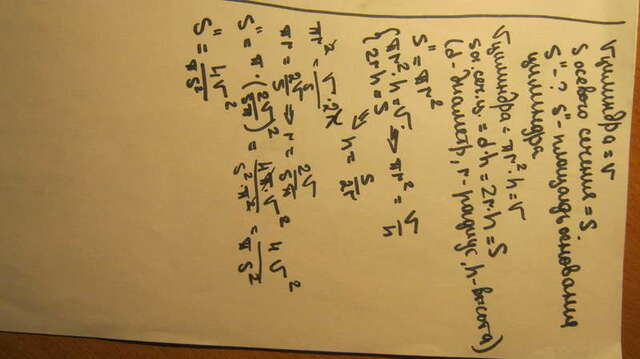 Vцилиндра = V
Sосевого сечения = S.
S" - ? S" - площадь основания
цилиндра
Vцилиндра = πr²·h = V
Sос.сеч.ц. = d·h = 2r·h = S
(d - диаметр, r - радиус, h - высота)
S" = πr²
{πr²·h = V ⇒ πr² = V/h
{2rh = S ⇒ h = S/2r
πr² = V·2r/S
πr = 2V/S ⇒ r = 2V/Sπ
S" = π·(2V/Sπ)² = 4π·V²/S²π² = 4V²/πS²
S" = 4V²/πS²